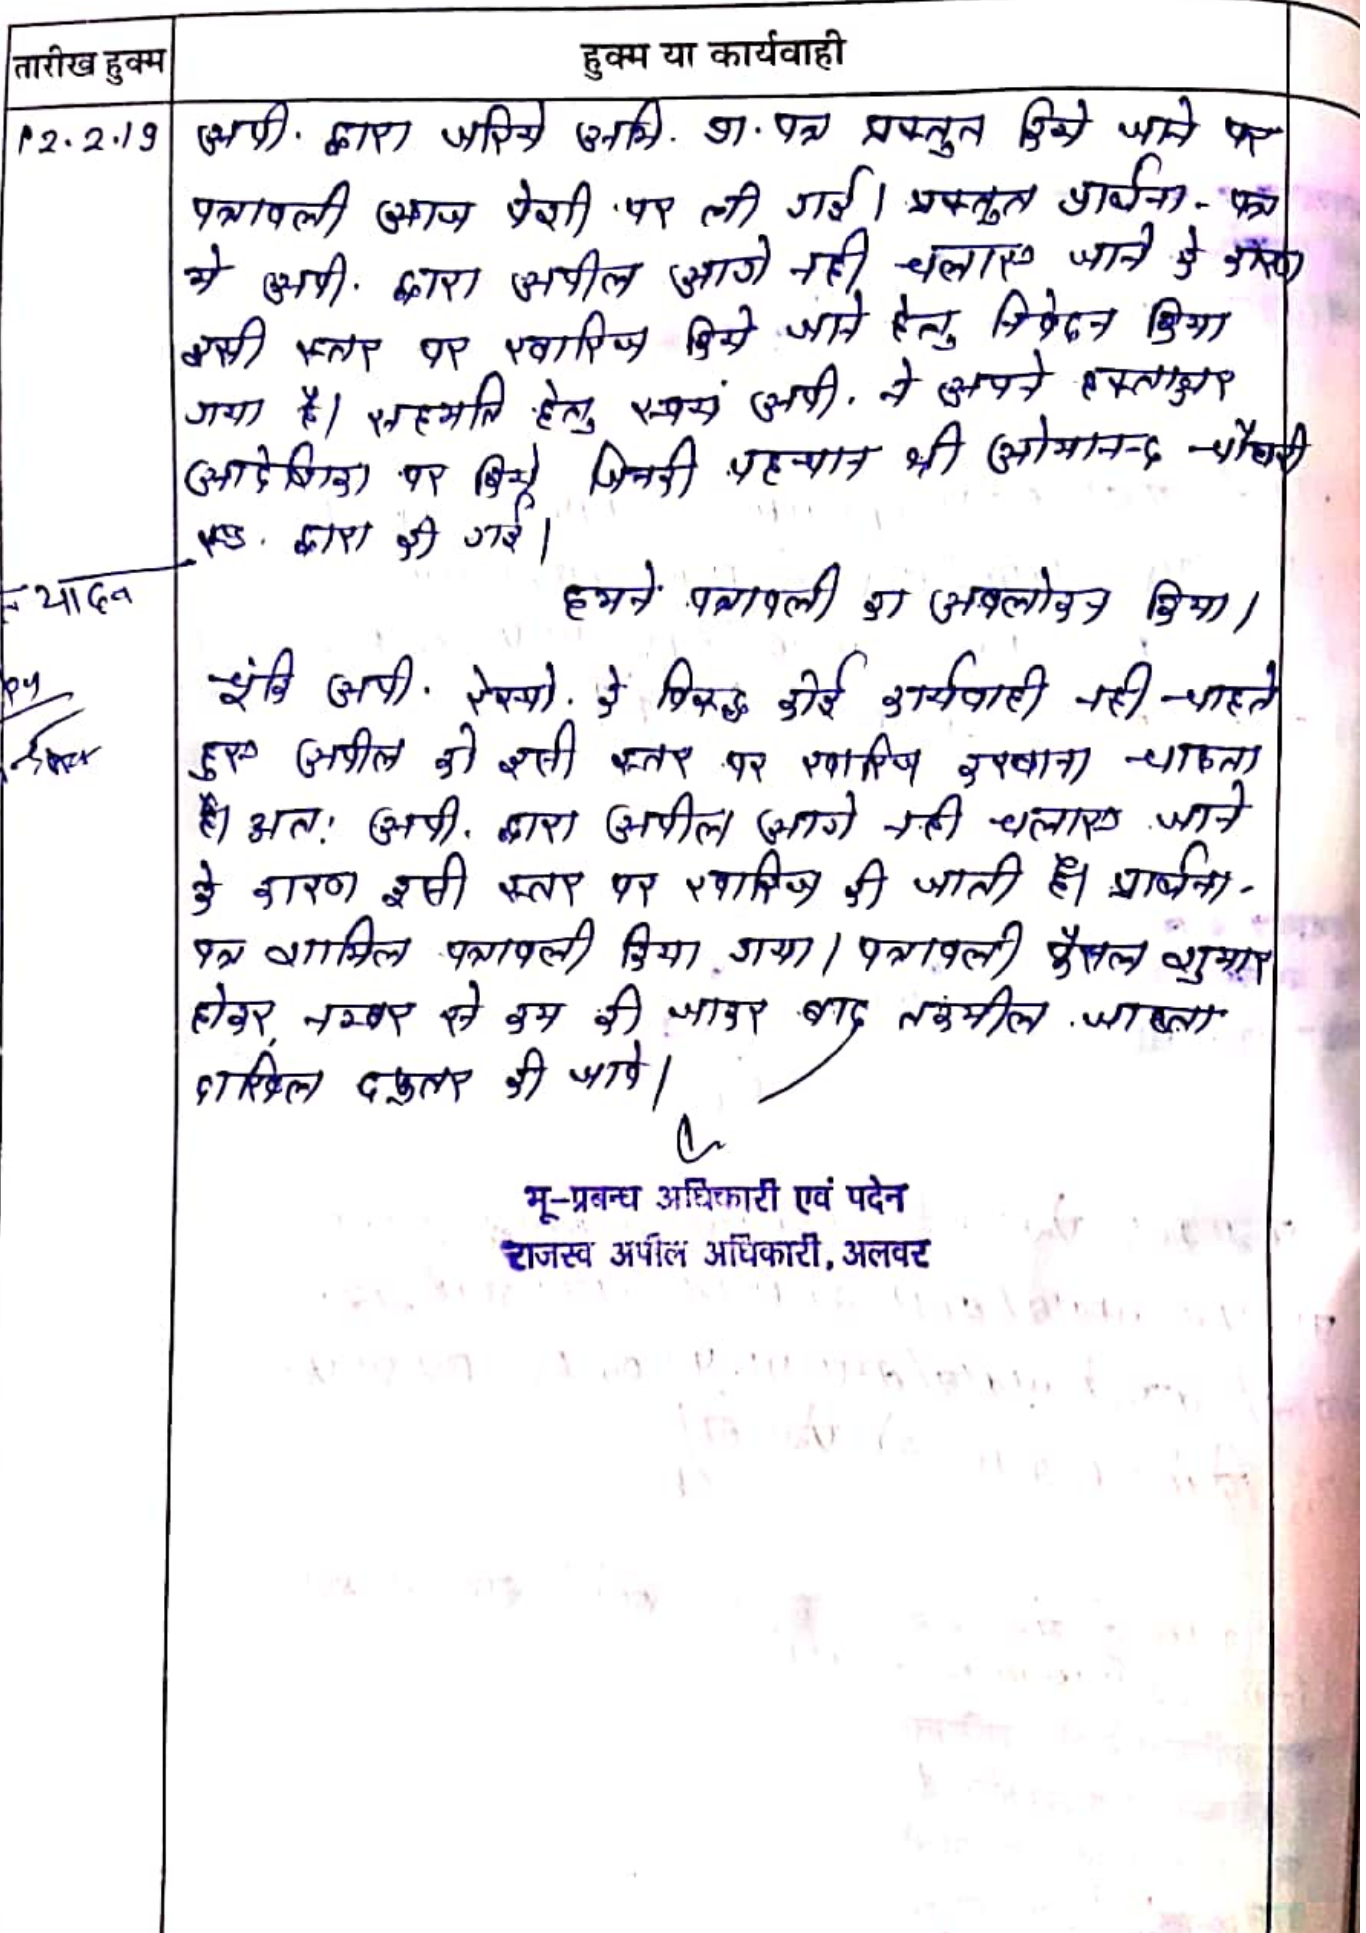 तारीख हुक्म
हुक्म या कार्यवाही
12.2.19
अपी. द्वारा जरिये अभि. प्रा. पत्र प्रस्तुत किये जाने पर
पत्रावली आज पेशी पर ली गई। प्रस्तुत प्रार्थना-पत्र
मे अपी. द्वारा अपील आगे नही चलाए जाने के कारण
इसी स्तर पर खारिज किये जाने हेतु निवेदन किया
गया है। सहमति हेतु स्वयं अपी. ने अपने हस्ताक्षर
आदेशिका पर किये जिनकी पहचान श्री ओमानन्द चौधरी
एड. द्वारा की गई।
यादव
हमने पत्रावली का अवलोकन किया।
चूंकि अपी. रेस्पो. के विरूद्ध कोई कार्यवाही नही चाहते
हुए अपील को इसी स्तर पर खारिज करवाना चाहता
है। अतः अपी. द्वारा अपील आगे नही चलाए जाने
के कारण इसी स्तर पर खारिज की जाती है। प्रार्थना-
पत्र शामिल पत्रावली किया गया। पत्रावली फैसल शुमार
होकर, नम्बर से कम की जाकर बाद तकमील जाब्ता
दाखिल दफ्तर की जावे।
भू-प्रबन्ध अधिकारी एवं पदेन
राजस्व अपील अधिकारी, अलवर